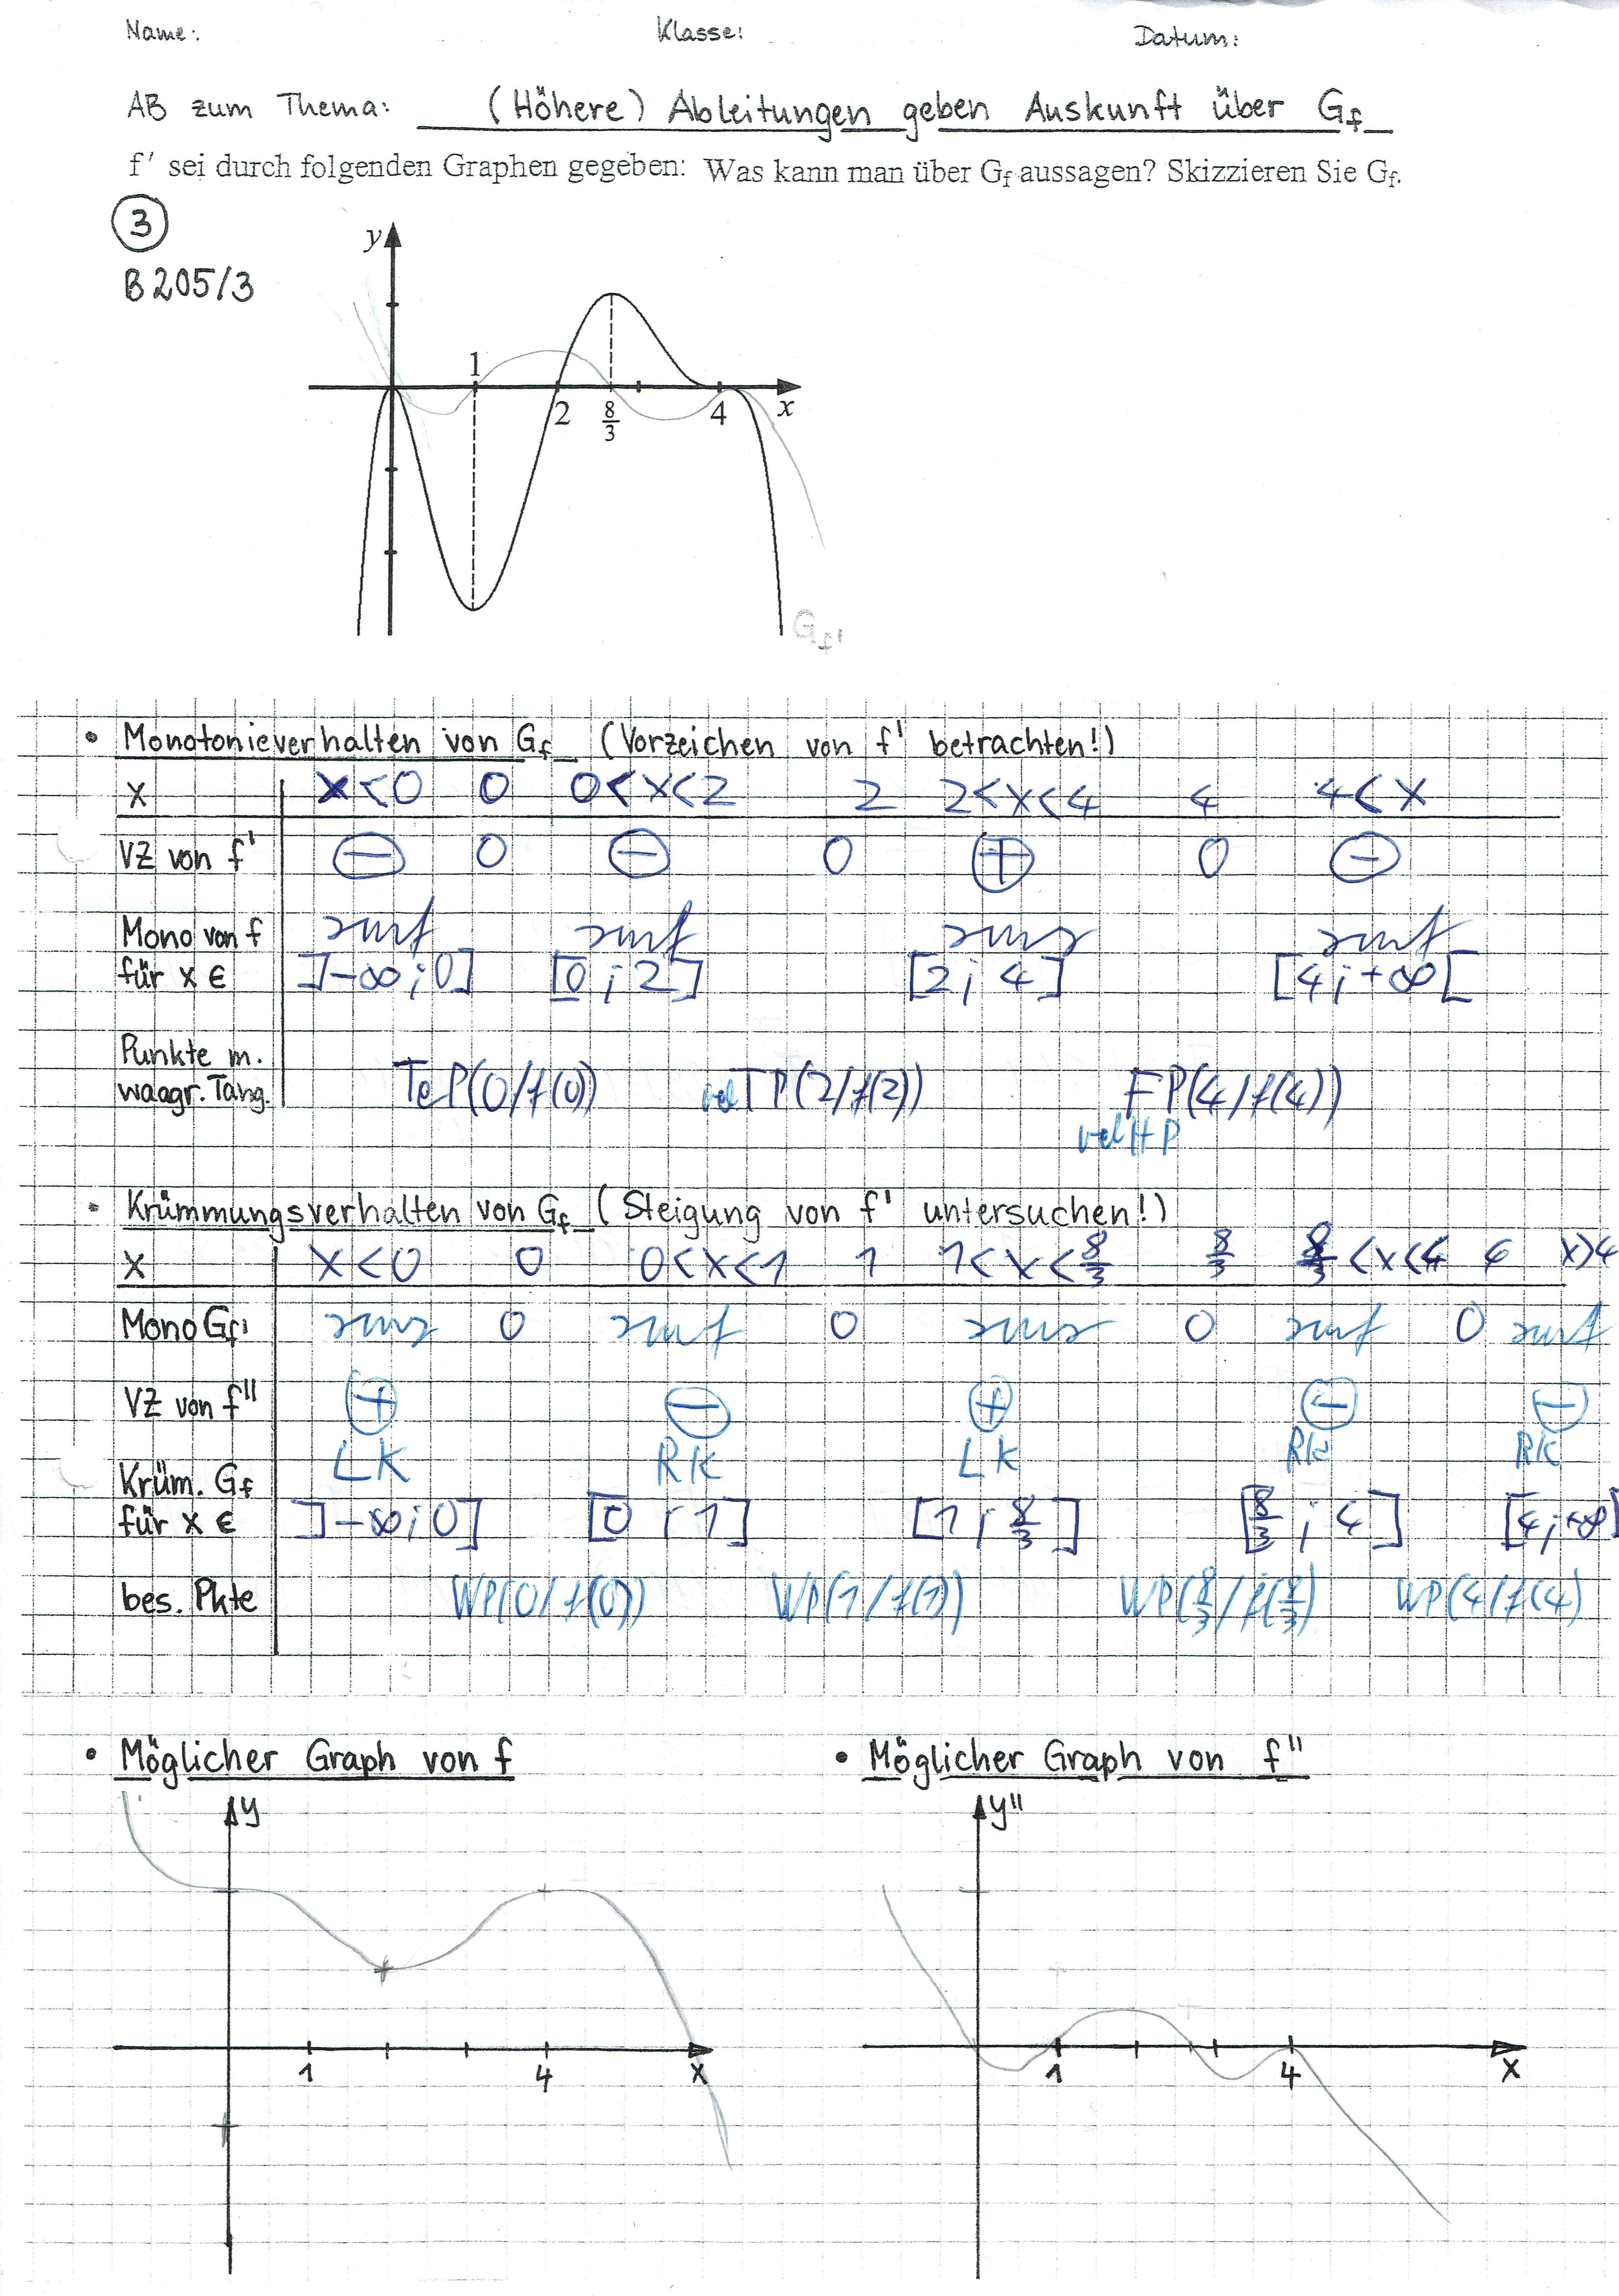 Name: Klasse: Datum:
AB zum Thema: (Höhere) Ableitungen geben Auskunft über Gf
f' sei durch folgenden Graphen gegeben: Was kann man über Gf aussagen? Skizzieren Sie Gf.
3
B205/3
y
1
2 8/3 4 x
Gf'
• Monotonieverhalten von Gf (Vorzeichen von f' betrachten!)
x x<0 0 0<x<2 2 2<x<4 4 4<x
VZ von f' − 0 − 0 + 0 −
Mono von f smf smf sms smf
für x ∈ ]-∞;0] [0;2] [2;4] [4;+∞[
Punkte m.
waagr. Tang. TeP(0/f(0)) relTP(2/f(2)) FP(4/f(4))
relHP
• Krümmungsverhalten von Gf (Steigung von f' untersuchen!)
x x<0 0 0<x<1 1 1<x<8/3 8/3 8/3<x<4 4 x>4
Mono Gf' sms 0 smf 0 sms 0 smf 0 smf
VZ von f'' + − + − −
LK RK LK RK RK
Krüm. Gf
für x ∈ ]-∞;0] [0;1] [1;8/3] [8/3;4] [4;+∞[
bes. Pkte WP(0/f(0)) WP(1/f(1)) WP(8/3/f(8/3)) WP(4/f(4)
• Möglicher Graph von f • Möglicher Graph von f''
y y''
1 4 x 1 4 x